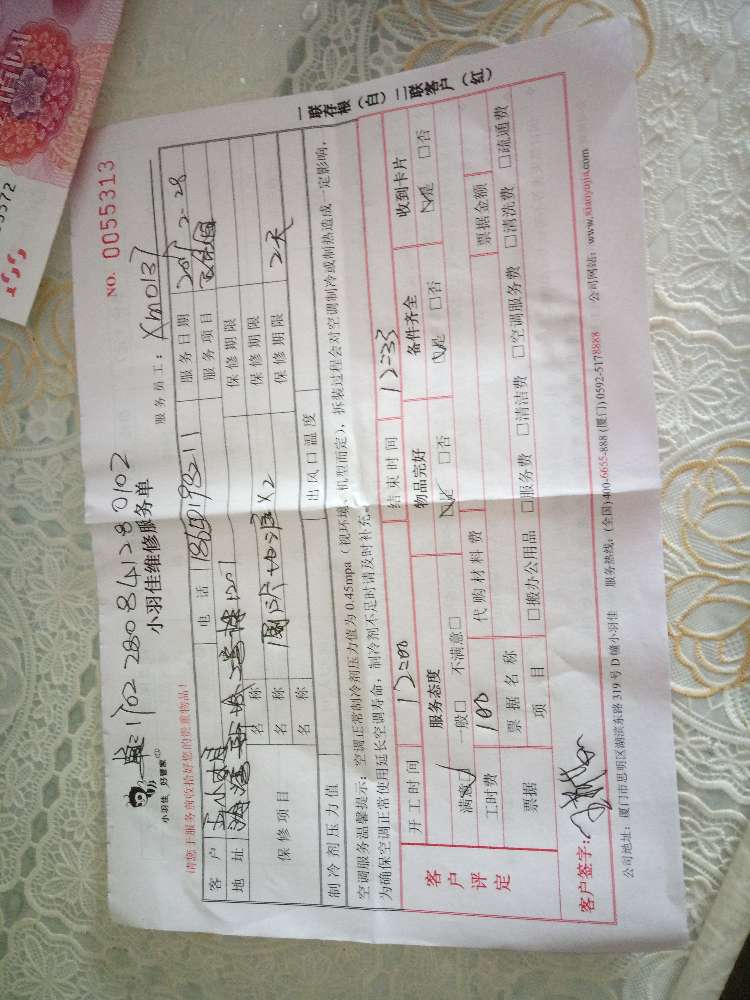 NO. 0055313
单:1702280841280102
小羽佳 好管家
小羽佳维修服务单
服务员工: Xm0137
请您于服务前收拾好您的贵重物品!
客户
电话
服务日期 2017-2-28
地址
1207
服务项目
保修项目
名称
保修期限
名称
×2
保修期限
名称
保修期限 2天
制冷剂压力值
出风口温度
空调服务温馨提示:空调正常制冷剂压力值为0.45mpa(视环境、机型而定),拆装过程会对空调制冷或制热造成一定影响,
为确保空调正常使用延长空调寿命,制冷剂不足时请及时补充。
客户评定
开工时间 12:00
结束时间 12:33
服务态度
物品完好
备件齐全
收到卡片
满意□ 一般□ 不满意□
□是 □否
□是 □否
□是 □否
工时费 100
代购材料费
票据金额
票据
票据名称
项目
□搬办公用品 □服务费 □清洁费 □空调服务费 □清洗费 □疏通费
客户签字:
公司地址:厦门市思明区湖滨东路319号D幢小羽佳 服务热线:(全国)400-6655-888 (厦门)0592-5178888 公司网站:www.xiaoyujia.com
一联存根(白) 二联客户(红)